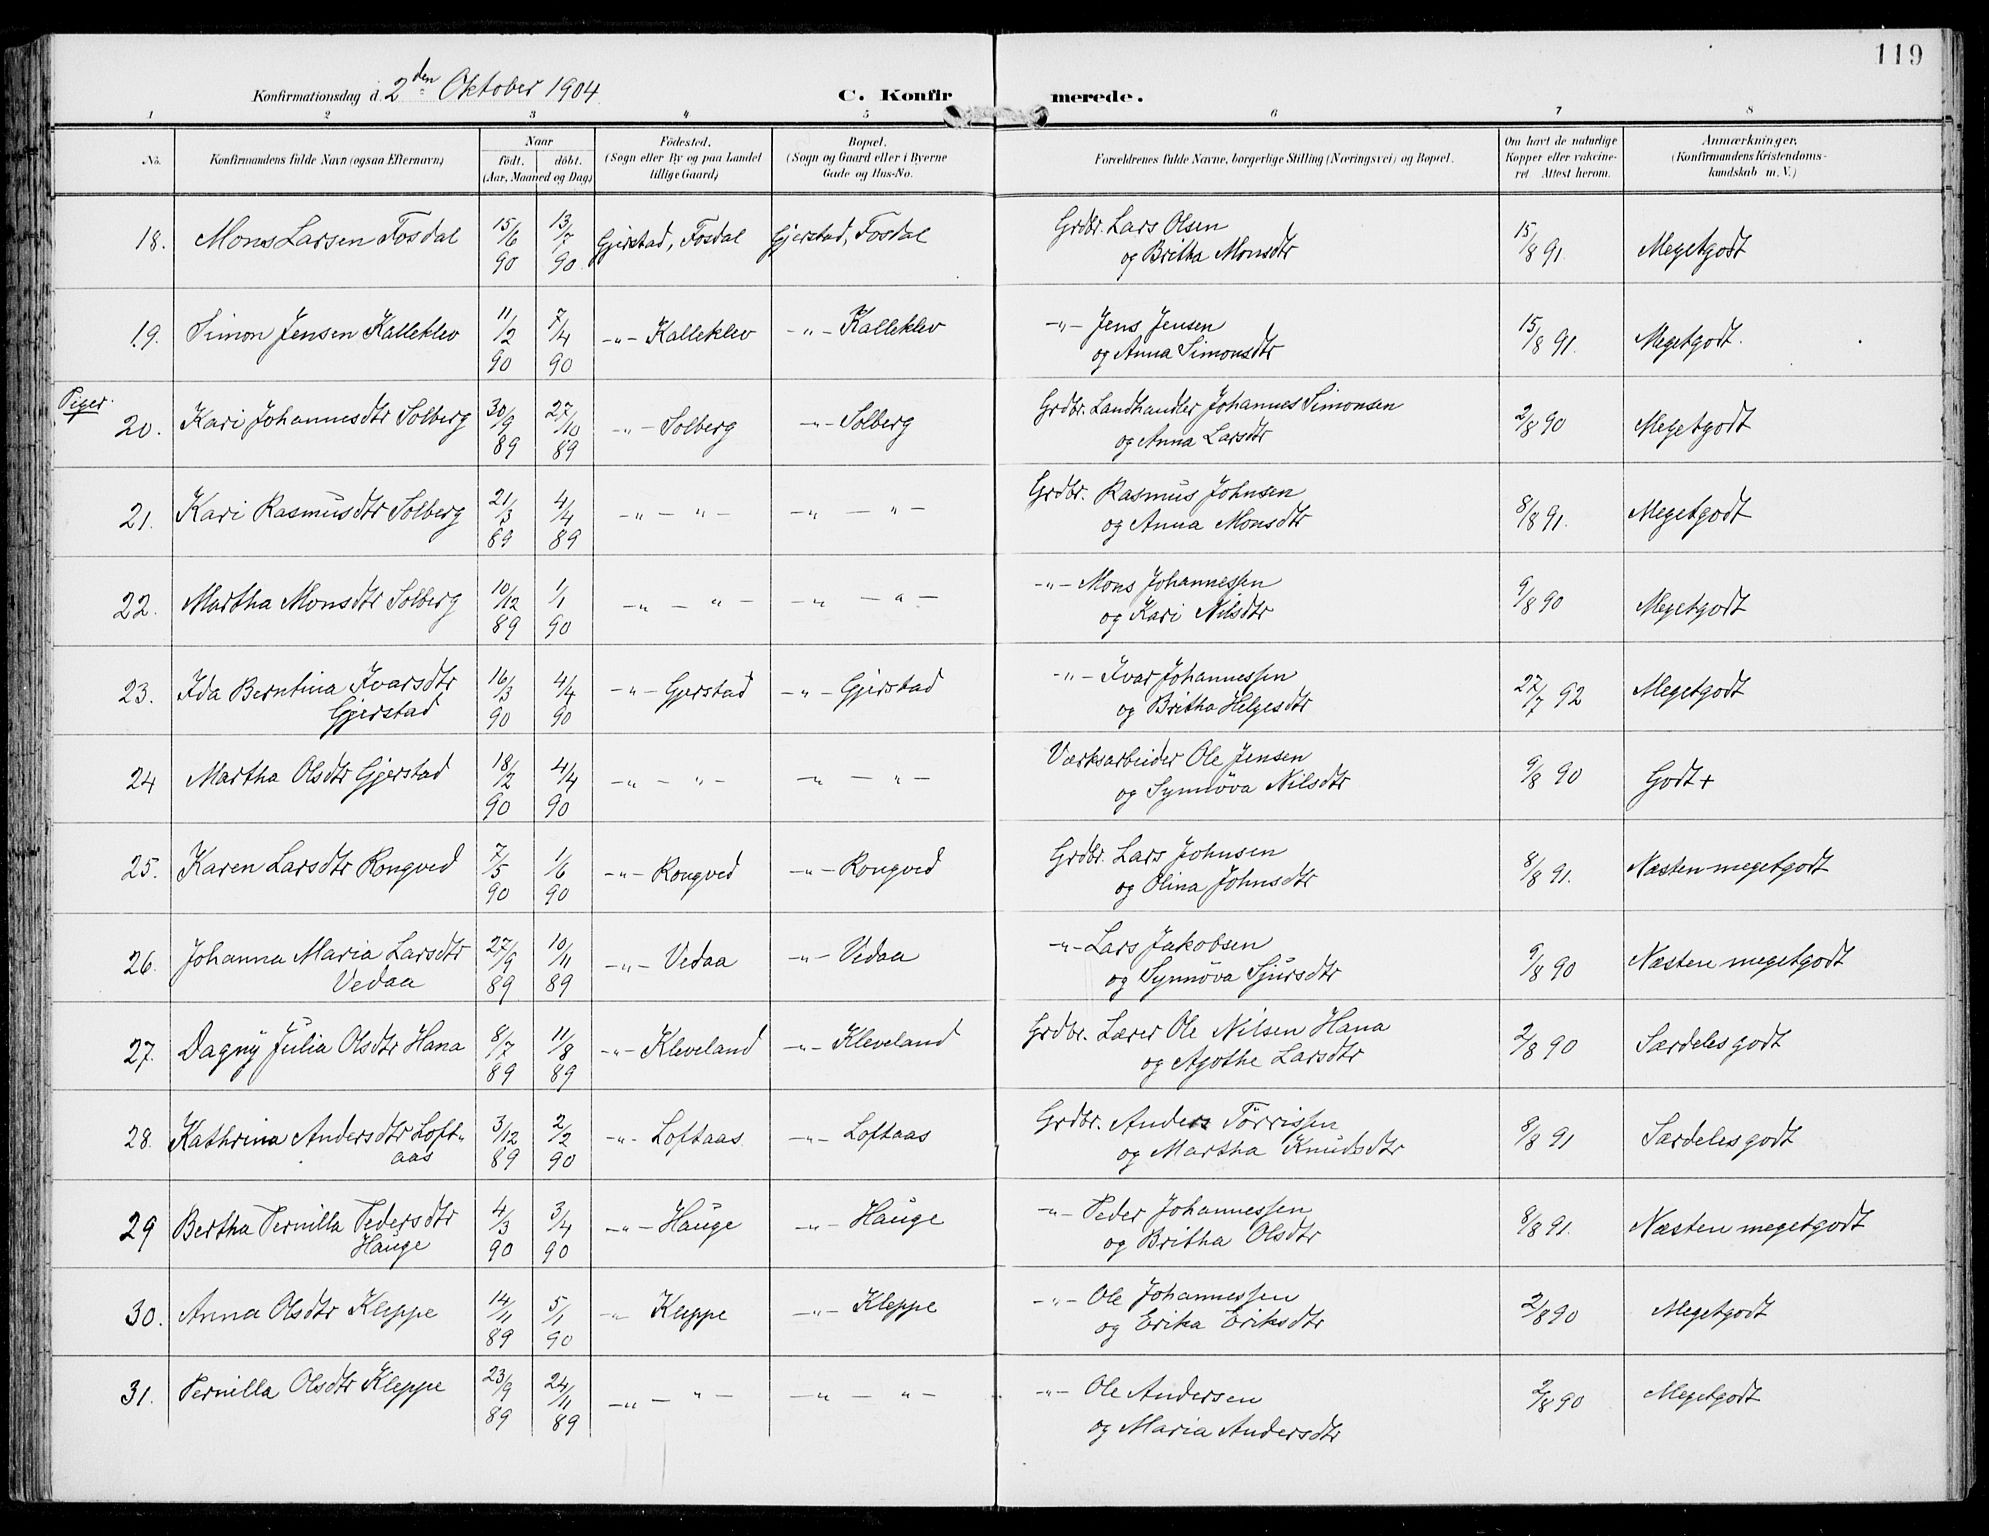 119
Konfirmationsdag d. 2den Oktober 1904
C. Konfirmerede.
1 2 3 4 5 6 7 8
No. Konfirmandens fulde Navn (ogsaa Efternavn) Naar født. døbt. (Aar, Maaned og Dag) Födested. (Sogn eller By og paa Landet tillige Gaard) Bopæl. (Sogn og Gaard eller i Byerne Gade og Hus-No. Forældrenes fulde Navne, borgerlige Stilling (Næringsvei) og Bopæl. Om havt de naturlige Kopper eller vakcineret Attest herom. Anmærkninger, (Konfirmandens Kristendomskundskab m. V.)
18. Mons Larsen Fosdal 15/6 90 13/7 90. Gjerstad, Fosdal Gjerstad, Fosdal Grdbr. Lars Olsen 15/8 91. Megetgodt
og Britha Monsdtr
19. Simon Jensen Kalleklev 11/2 90 7/4 90 -"- Kalleklev -"- Kalleklev -"- Jens Jensen 15/8 91. Megetgodt.
og Anna Simonsdtr
Piger.
20. Kari Johannesdtr Solberg 30/9 89 27/10 89 -"- Solberg -"- Solberg Grdbr. Landhandler Johannes Simonsen 2/8 90 Megetgodt
og Anna Larsdtr
21. Kari Rasmusdtr Solberg 21/3 89 4/4 89 -"- "- -"- "- Grdbr. Rasmus Johnsen 8/8 91. Megetgodt
og Anna Monsdtr
22. Martha Monsdtr Solberg 10/12 89 1/1 90 -"- "- -"- "- -"- Mons Johannessen 9/8 90 Megetgodt
og Kari Nilsdtr
23. Ida Berntina Ivarsdtr 16/3 90 4/4 90 -"- Gjerstad -"- Gjerstad -"- Ivar Johannessen 27/7 92 Megetgodt
Gjerstad og Britha Helgesdtr
24 Martha Olsdtr Gjerstad 18/2 90 4/4 90 -"- "- -"- "- Værksarbeider Ole Jensen 9/8 90 Godt +
og Synnöva Nilsdtr
25. Karen Larsdtr Rongved 7/5 90 1/6 90 -"- Rongved -"- Rongved Grdbr. Lars Johnsen 8/8 91. Næsten megetgodt
og Olina Johnsdtr
26. Johanna Maria Larsdtr 27/9 89 10/11 89 -"- Vedaa -"- Vedaa -"- Lars Jakobsen 9/8 90 Næsten megetgodt
Vedaa og Synnöva Sjursdtr
27. Dagny Julia Olsdtr Hana 8/7 89 11/8 89 -"- Kleveland -"- Kleveland Grdbr. Lærer Ole Nilsen Hana 2/8 90 Særdeles godt
og Agothe Larsdtr
28. Kathrina Andersdtr Loft" 3/12 89 2/2 90 -"- Loftaas -"- Loftaas Grdbr. Anders Törrissen 8/8 91 Særdeles godt
aas og Martha Knudsdtr
29 Bertha Pernilla Pedersdtr 4/3 90 3/4 90 -"- Hauge -"- Hauge -"- Peder Johannessen 8/8 91. Næsten megetgodt
Hauge og Britha Olsdtr
30. Anna Olsdtr Kleppe 14/11 89 5/1 90 -"- Kleppe -"- Kleppe -"- Ole Johannessen 2/8 90 Megetgodt
og Erika Eriksdtr
31. Pernilla Olsdtr Kleppe 23/9 89 24/11 89 -"- "- -"- "- -"- Ole Andersen 2/8 90 Megetgodt
og Maria Andersdtr